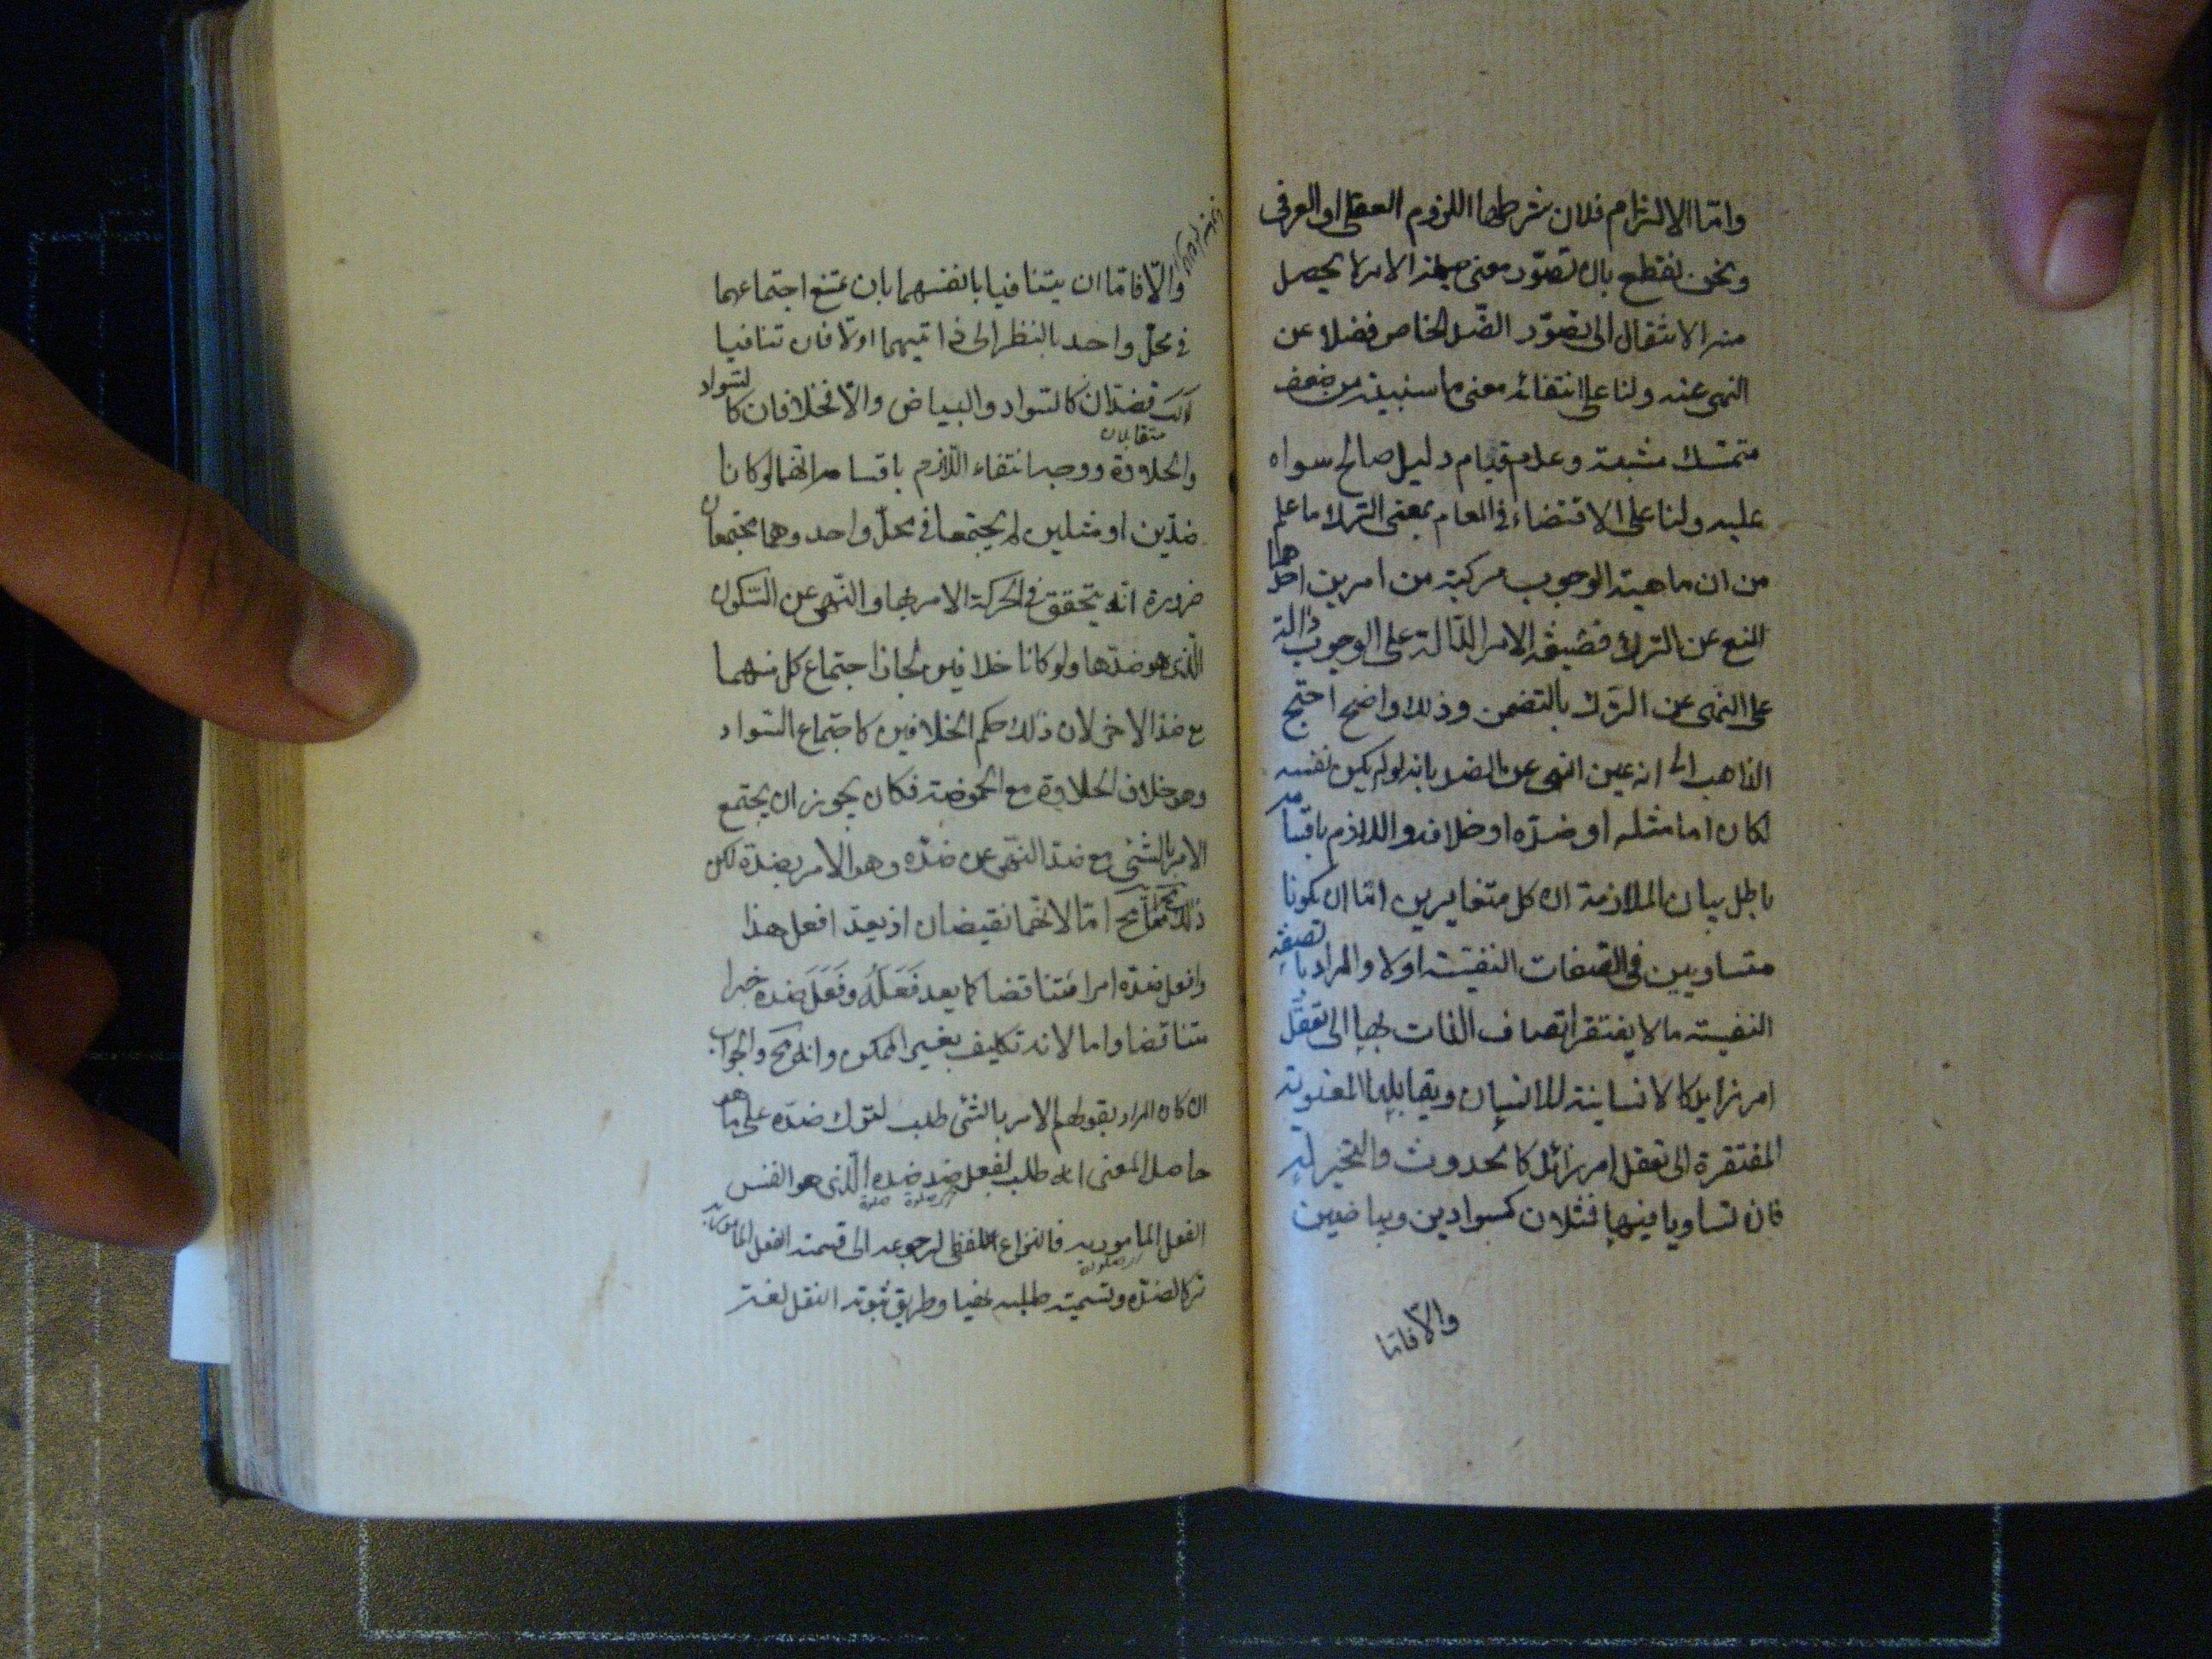 واما الالتزام فلان شرطها اللزوم العقلى او العرفى
ونحن نقطع بان تصور معنى صيغة الامر لا يحصل
منه الانتقال الى تصور الضد الخاص فضلا عن
النهى عنه ولنا على انتفائه معنى ما سنبينه من ضعف
متمسك مثبته وعدم قيام دليل صالح سواه
عليه ولنا على الاقتضاء فى العام بمعنى الترك ما علم
من ان ماهية الوجوب مركبة من امرين احدهما
المنع عن الترك فصيغة الامر الدالة على الوجوب دالة
على النهى عن الترك بالتضمن وذلك واضح احتج
الذاهب الى انه عين النهى عن الضد بانه لو لم يكن نفسه
لكان اما مثله او ضده او خلافه واللازم باقسامه
باطل بيان الملازمة ان كل متغايرين اما ان يكونا
متساويين فى الصفات النفسية او لا والمراد بالصفة
النفسية ما لا يفتقر اتصاف الذات بها الى تعقل
امر زايد كالانسانية للانسان ويقابلها المعنوية
المفتقرة الى تعقل امر زائد كالحدوث والتحيز له
فان تساويا فيها فمثلان كسوادين وبياضين
والا فاما
والا فاما ان يتنافيا بانفسهما بان يمتنع اجتماعهما
فى محل واحد بالنظر الى ذاتيهما او لا فان تنافيا
كك فضدان كالسواد والبياض والا فخلافان كالسواد
متقابلان
والحلاوة ووجه انتفاء اللازم باقسامه انهما لو كانا
ضدين او مثلين لم يجتمعا فى محل واحد وهما مجتمعان
ضرورة انه يتحقق فى الحركة الامر بها والنهى عن السكون
الذى هو ضدها ولو كانا خلافين لجاز اجتماع كل منهما
مع ضد الاخر لان ذلك حكم الخلافين كاجتماع السواد
وهو خلاف الحلاوة مع الحموضة فكان يجوز ان يجتمع
الامر بالشئ مع ضد النهى عن ضده وهو الامر بضده لكن
ذلك مح اما لانهما نقيضان اذ يعد افعل هذا
وافعل ضده امرا متناقضا كما يعد فَعَلَهُ وفَعَلَ ضده خبرا
متناقضا واما لانه تكليف بغير الممكن وانه مح والجواب
ان كان المراد بقولهم الامر بالشئ طلب لترك ضده على ما هو
حاصل المعنى انه طلب لفعل ضد ضده الذى هو النفس
الفعل المامور به فالنزاع لفظى لرجوعه الى تسمية الفعل المامور به
تركا لضده وتسمية طلبه نهيا وطريق ثبوته النقل لغة